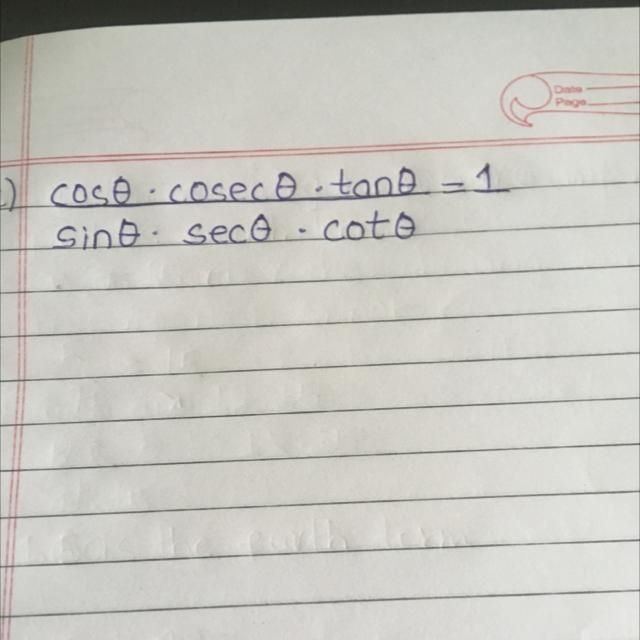 Date
Page
c) cosθ · cosecθ · tanθ = 1
sinθ · secθ · cotθ